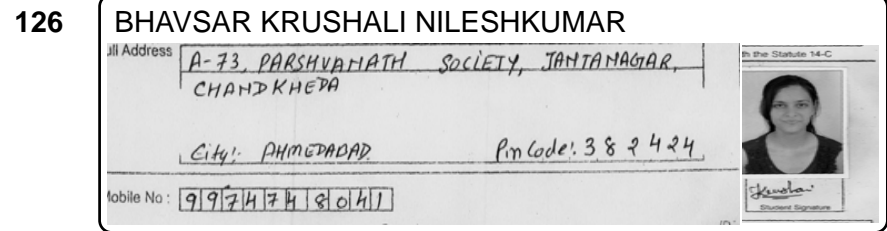 126 BHAVSAR KRUSHALI NILESHKUMAR
ull Address A-73, PARSHVANATH SOCIETY, JANTANAGAR,
CHANDKHEDA
City:. AHMEDABAD. Pin Code:. 382424
Mobile No : 9974748041
th the Statute 14-C
Krushali
Student Signature